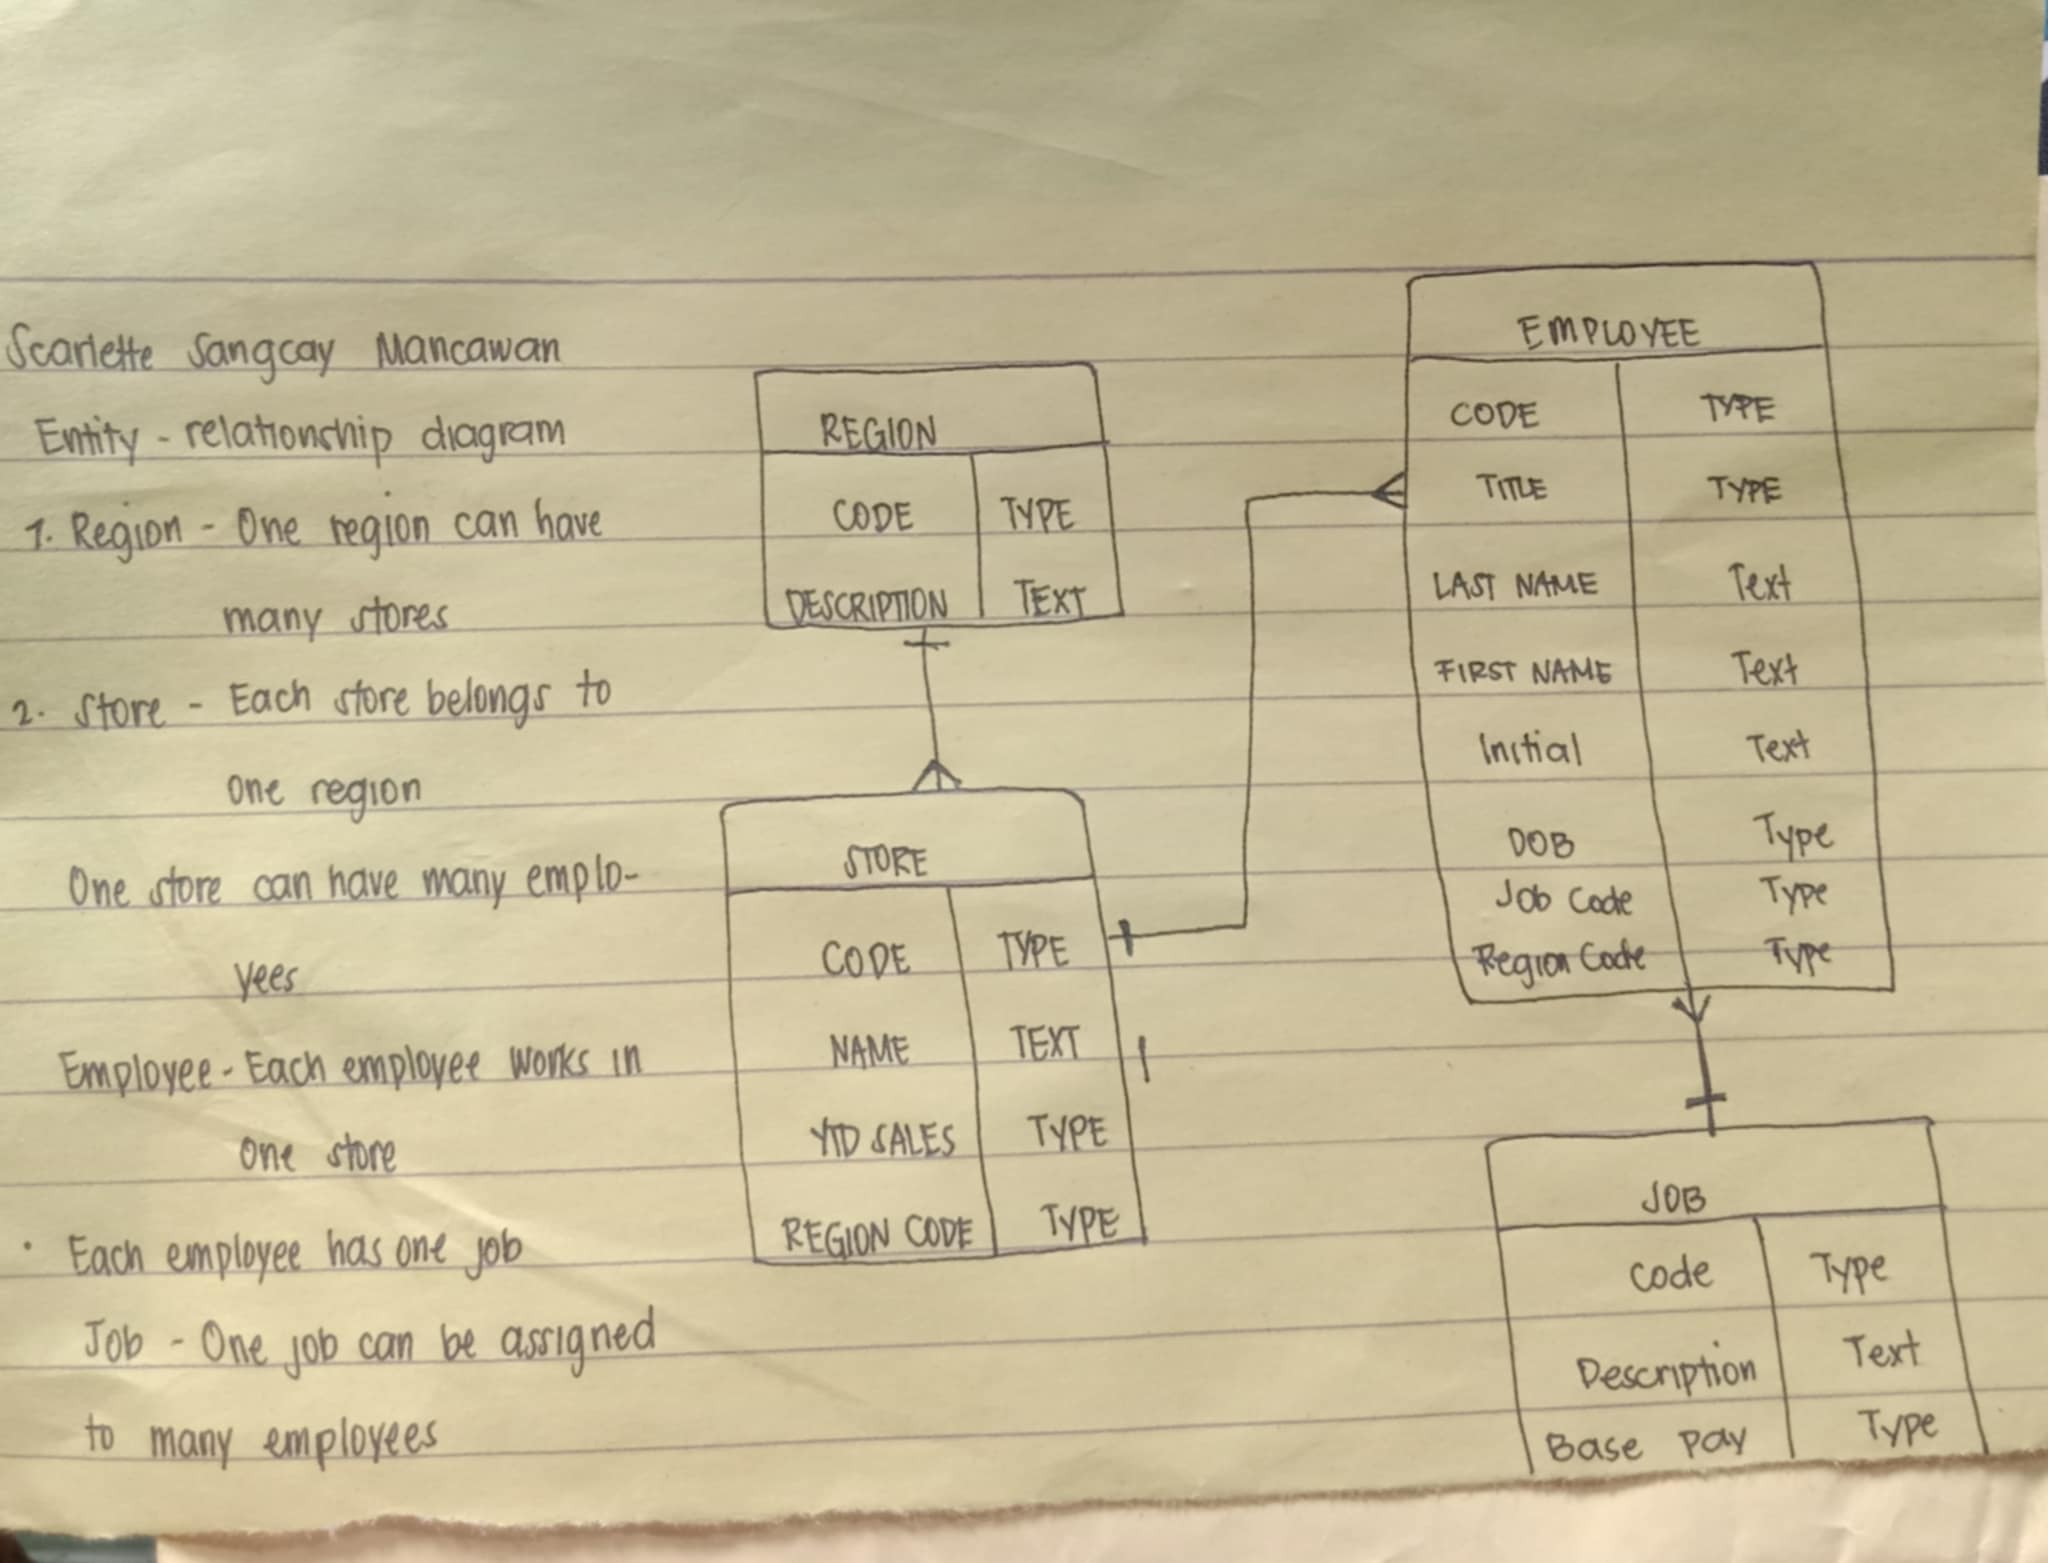 Scarlette Sangcay Mancawan
Entity - relationship diagram
1. Region - One region can have
many stores
2. Store - Each store belongs to
one region
One store can have many emplo-
yees
Employee - Each employee works in
one store
· Each employee has one job
Job - One job can be assigned
to many employees
REGION
CODE TYPE
DESCRIPTION TEXT
STORE
CODE TYPE
NAME TEXT
YTD SALES TYPE
REGION CODE TYPE
EMPLOYEE
CODE TYPE
TITLE TYPE
LAST NAME Text
FIRST NAME Text
Initial Text
DOB Type
Job Code Type
Region Code Type
JOB
Code Type
Description Text
Base pay Type